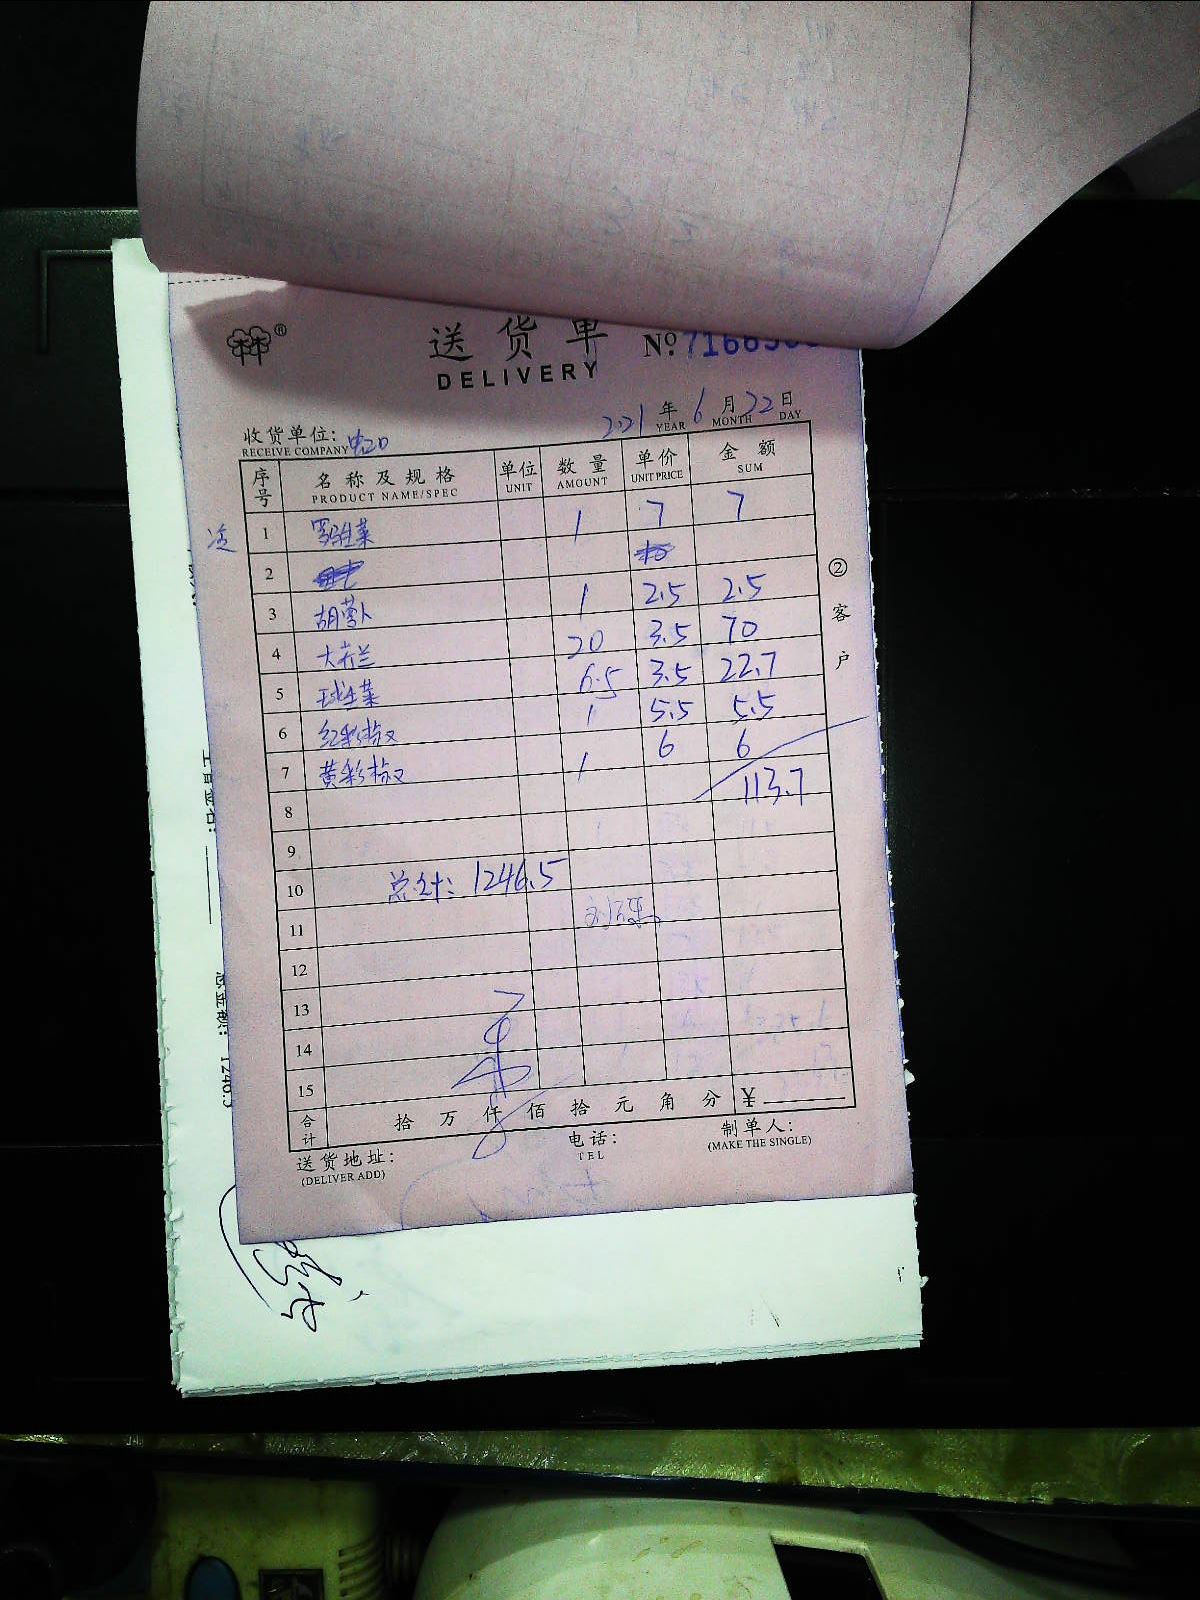 送货单
DELIVERY
№ 71665
2021 年 6 月 22 日
YEAR MONTH DAY
收货单位:
RECEIVE COMPANY
序号 名称及规格 单位 数量 单价 金额
PRODUCT NAME/SPEC UNIT AMOUNT UNIT PRICE SUM
1 罗马生菜 1 7 7
2
3 胡萝卜 1 2.5 2.5
4 大芥兰 20 3.5 70
5 球生菜 6.5 3.5 22.7
6 红彩椒 1 5.5 5.5
7 黄彩椒 1 6 6
8 113.7
9
10 总计: 1246.5
11
12
13
14
15
合计 拾 万 仟 佰 拾 元 角 分 ¥
送货地址: 电话: 制单人:
(DELIVER ADD) TEL (MAKE THE SINGLE)
② 客户